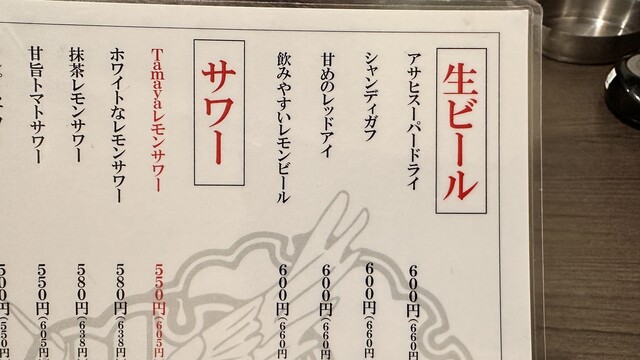 生ビール
アサヒスーパードライ 600円(660円
シャンディガフ 600円(660円
甘めのレッドアイ 600円(660円
飲みやすいレモンビール 600円(660円
サワー
Tamayaレモンサワー 550円(605円
ホワイトなレモンサワー 580円(638円
抹茶レモンサワー 580円(638円
甘旨トマトサワー 550円(605円
500円(550円